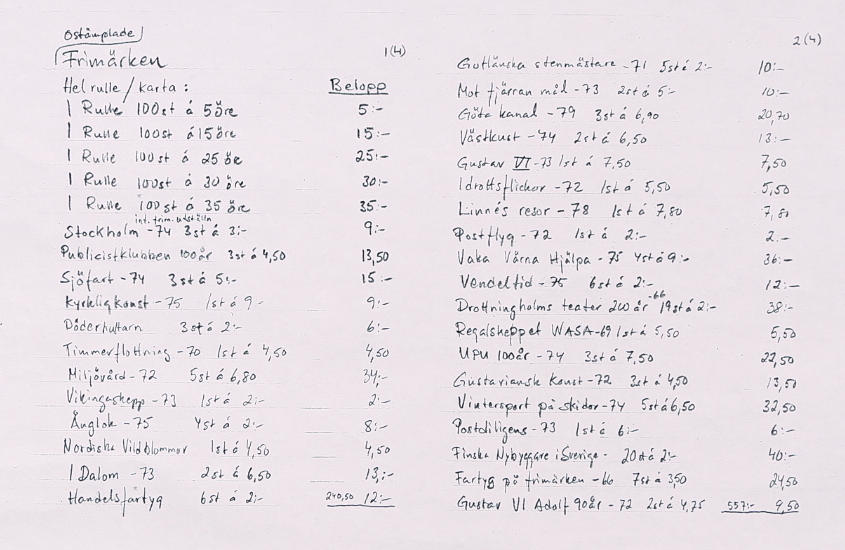 Ostämplade
Frimärken 1(4)
Hel rulle / karta : Belopp
1 Rulle 100st á 5 öre 5:-
1 Rulle 100st á 15 öre 15:-
1 Rulle 100st á 25 öre 25:-
1 Rulle 100st á 30 öre 30:-
1 Rulle 100st á 35 öre 35:-
int. frim. utställn
Stockholm -74 3st á 3:- 9:-
Publicistklubben 100år 3st á 4,50 13,50
Sjöfart -74 3st á 5:- 15:-
Kyrklig konst -75 1st á 9- 9:-
Döderhultarn 3st á 2:- 6:-
Timmerflottning -70 1st á 4,50 4,50
Miljövård -72 5st á 6,80 34:-
Vikingaskepp -73 1st á 2:- 2:-
Ånglok -75 4st á 2:- 8:-
Nordiska Vildblommor 1st á 4,50 4,50
I Dalom -73 2st á 6,50 13:-
Handelsfartyg 6st á 2:- 240,50 12:-
2(4)
Gotländska stenmästare -71 5st á 2:- 10:-
Mot fjärran mål -73 2st á 5:- 10:-
Göta kanal -79 3st á 6,90 20,70
Västkust -74 2st á 6,50 13:-
Gustav VI -73 1st á 7,50 7,50
Idrottsflickor -72 1st á 5,50 5,50
Linnés resor -78 1st á 7,80 7,80
Postflyg -72 1st á 2:- 2:-
Vaka Värna Hjälpa -75 4st á 9:- 36:-
Vendeltid -75 6st á 2:- 12:-
Drottningholms teater 200år -66 19st á 2:- 38:-
Regalskeppet WASA -69 1st á 5,50 5,50
UPU 100år -74 3st á 7,50 22,50
Gustaviansk Konst -72 3st á 4,50 13,50
Vintersport på skidor -74 5st á 6,50 32,50
Postdiligens -73 1st á 6:- 6:-
Finska Nybyggare i Sverige - 20st á 2:- 40:-
Fartyg på frimärken -66 7st á 3,50 24,50
Gustav VI Adolf 90år -72 2st á 4,75 557:- 9,50